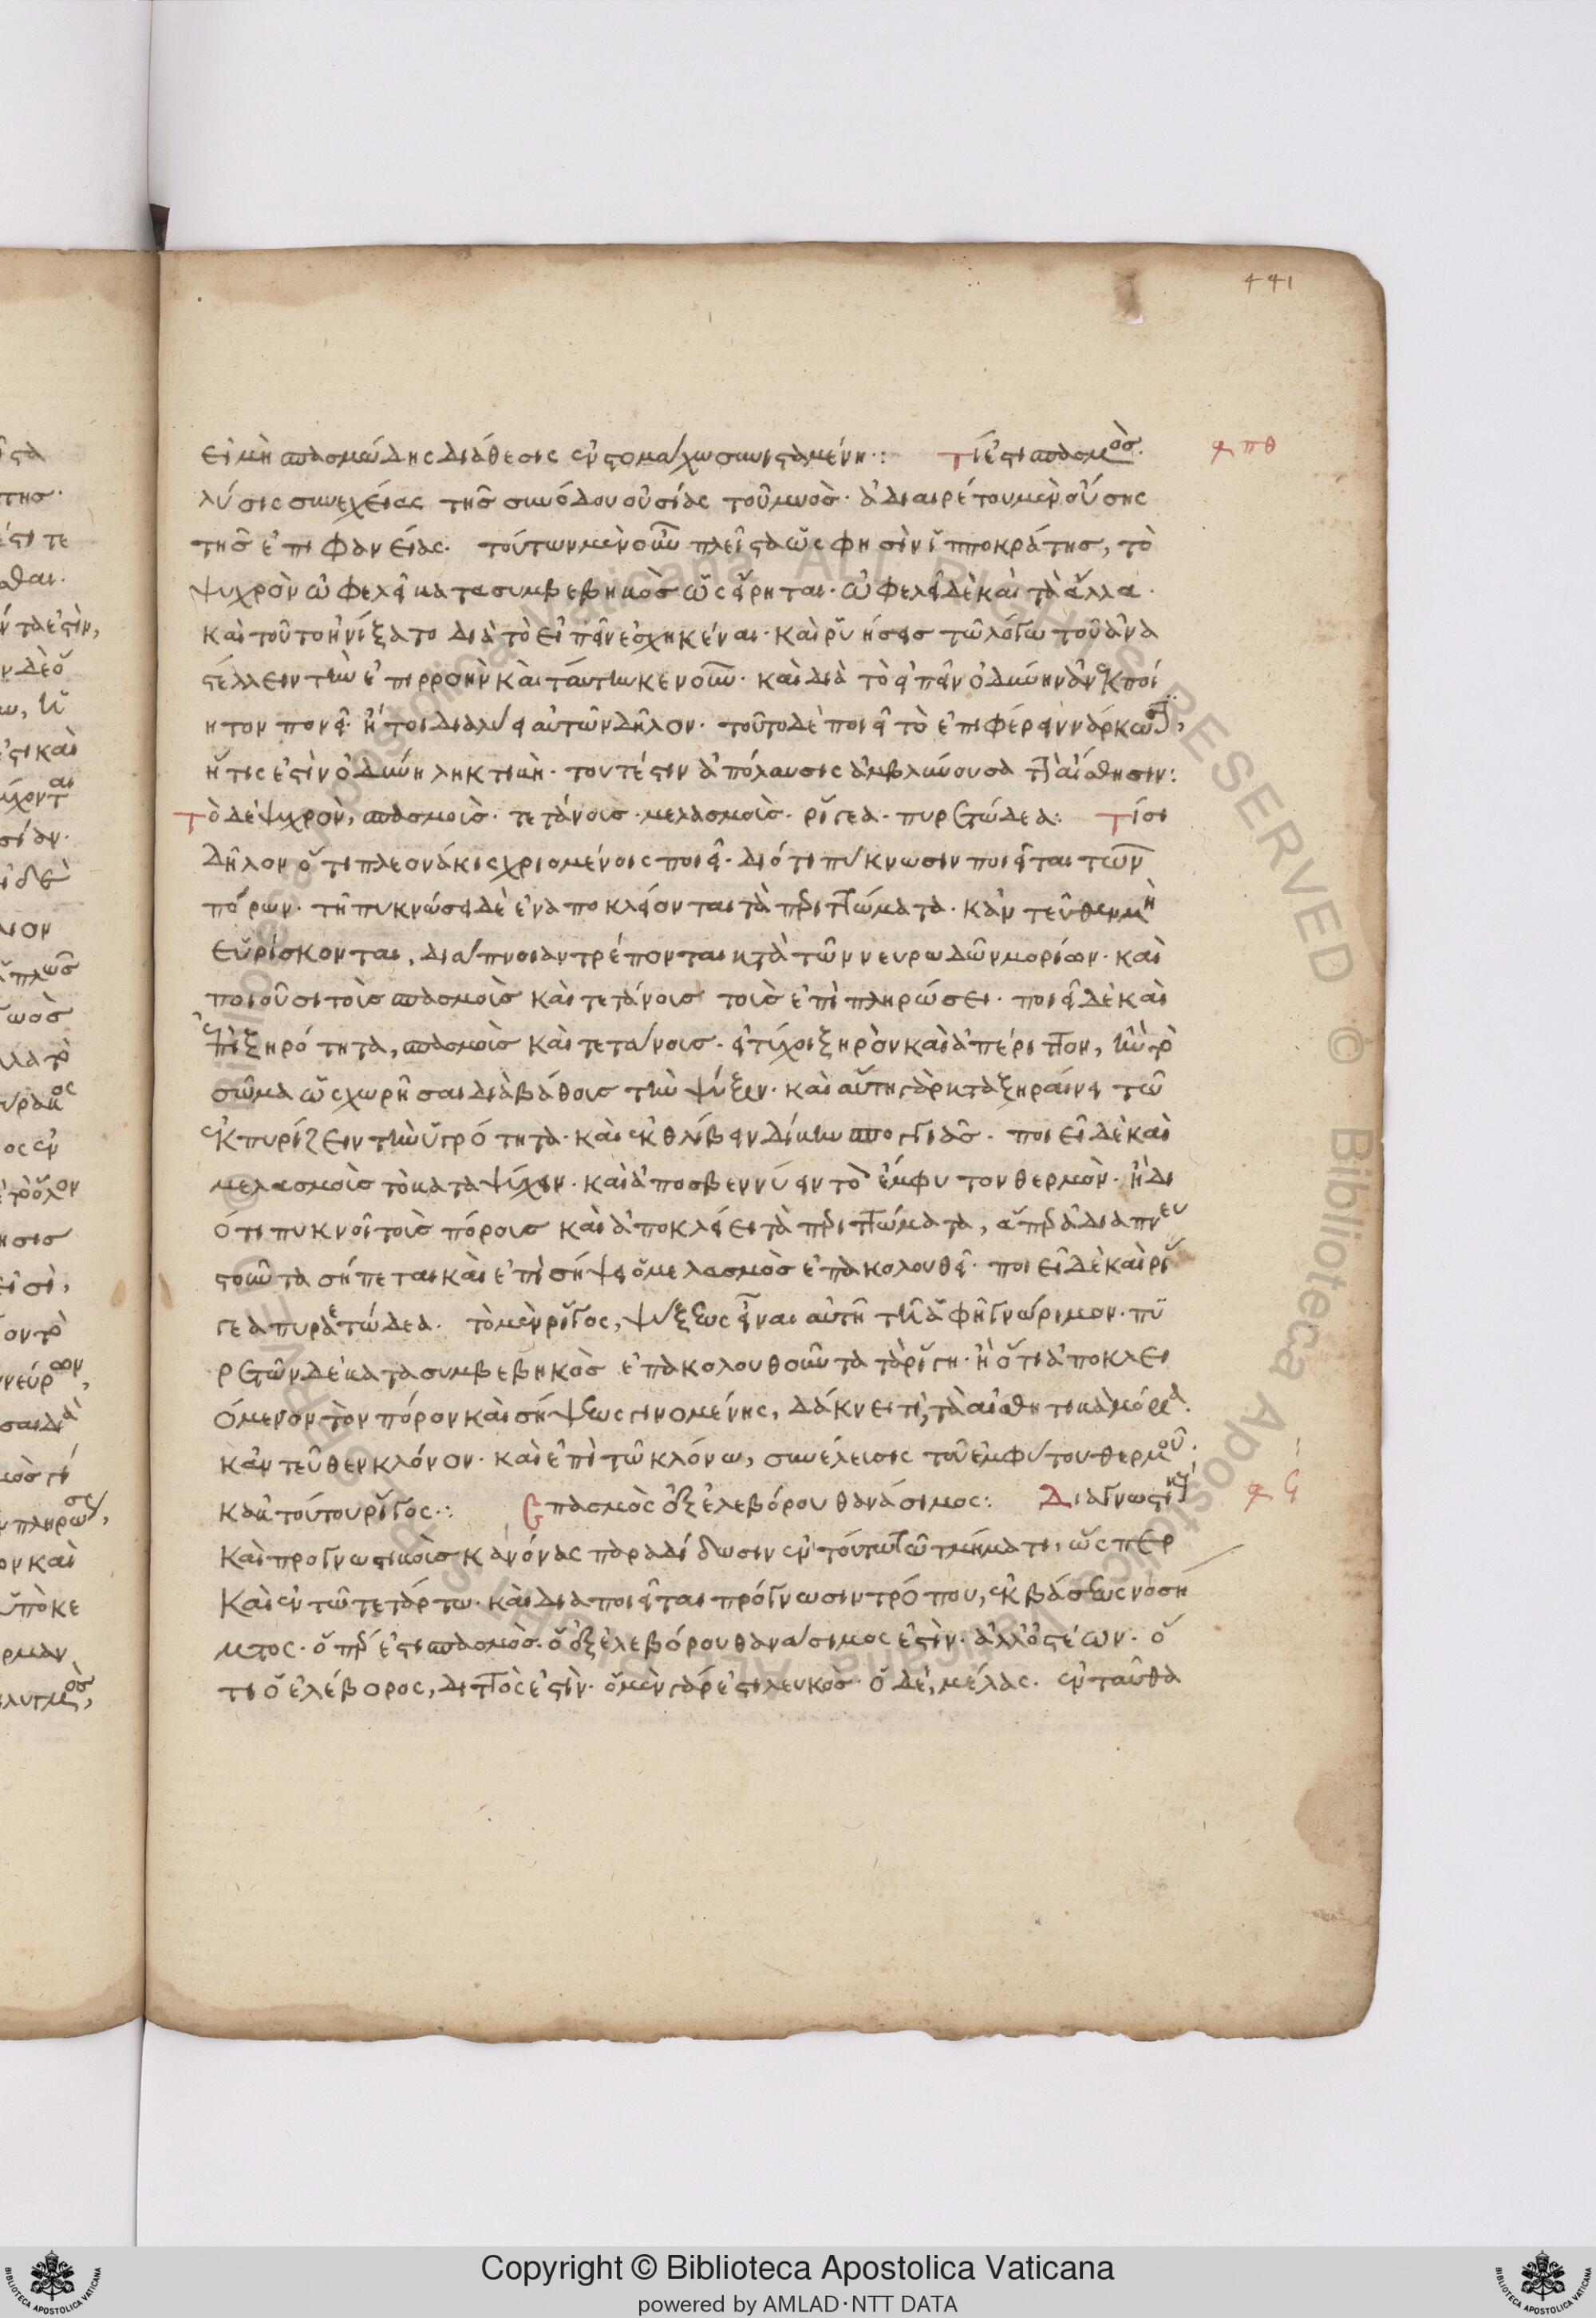 441
εἰ μὴ σπασμώδης διάθεσις ἐν στομάχω συνισταμένη·: τί ἐστι σπασμὸς· φπθ
λύσις συνεχείας τῆς συνόδου οὐσίας τοῦ μυὸς· ἀδιαιρέτου μὲν οὔσης
τῆς ἐπιφανείας· τούτων μὲν οὖν πλεῖστα ὥς φησὶν ἱπποκράτης, τὸ
ψυχρὸν ὠφελεῖ κατα συμβεβηκὸς ὡς εἴρηται· ὠφελεῖ δὲ καὶ τὰ ἄλλα·
καὶ τοῦτο ἠνίξατο διὰ τὸ εἰπεῖν ἐσχηκέναι· καὶ τῶ λόγω τοῦ ἀνα
στέλλειν τὴν ἐπιρροὴν καὶ ταύτην κενοῦν· καὶ διὰ τὸ εἰπεῖν ὀδύνην ἂν ἐκ ποί
ἤτοι διαλύει αὐτῶν δῆλον· τοῦτο δὲ ποιεῖ τὸ ἐπιφέρειν νάρκωσιν,
ἥτις ἐστὶν ὀδύνη ληκτικὴ· τουτέστιν ἀπόλαυσις ἀμβλύνουσα τὴν αἴσθησιν:
Τὸ δὲ ψυχρὸν, σπασμοὺς· τετάνους· μελασμοὺς· ῥίγεα· πυρετώδεα: τίσι
δῆλον ὅτι πλεονάκις χριομένοις ποιεῖ· διότι πύκνωσιν ποιεῖται τῶν
πόρων· τῆ πυκνώσει δὲ ἐναποκλείονται τὰ περιττώματα· κἀντεῦθεν μὴ
εὑρίσκονται, διάπνοιαν τρέπονται κατὰ τῶν νευρωδῶν μορίων· καὶ
ποιοῦσι τοὺς σπασμοὺς καὶ τετάνους τοὺς ἐπὶ πληρώσει· ποιεῖ δὲ καὶ
ἐπὶ ξηρότητα, σπασμοὺς καὶ τετάνους· εἰ τύχοι ξηρὸν καὶ ἀπέριττον, ἦν τὸ
σῶμα ὡς χωρῆσαι διὰ βάθους τὴν ψύξιν· καὶ αὕτη γὰρ καταξηραίνει τῶ
ἐκπυρίζειν τὴν ὑγρότητα· καὶ ἐκθλίβειν δίκην σπογγιᾶς· ποιεῖ δὲ καὶ
μελασμοὺς τὸ καταψύχειν· καὶ ἀποσβεννύειν τὸ ἔμφυτον θερμὸν· ἢ δι
ότι πυκνοῖ τοὺς πόρους καὶ ἀποκλείει τὰ περιττώματα, ἅπερ ἀδιαπνευ
στοῦντα σήπεται καὶ ἐπὶ σήψει ὁ μελασμὸς ἐπακολουθεῖ· ποιεῖ δὲ καὶ ῥί
γεα πυρετώδεα· τὸ μὲν ῥῖγος, ψύξεως εἶναι αὐτῆ τῆ ἁφῆ γνώριμον· πυ
ρετῶν δὲ κατα συμβεβηκὸς ἐπακολουθοῦντα τὰ ῥίγη· ἢ ὅτι ἀποκλει
όμενον τὸν πόρον καὶ σήψεως γινομένης, δάκνει τὲ, τὰ αἰσθητικὰ μόρια·
κἀντεῦθεν κλόνον· καὶ ἐπὶ τῶ κλόνω, συνέλευσις τοῦ ἐμφύτου θερμοῦ·
κἀκ τούτου ῥῖγος·: Σπασμὸς ἐξ ἐλεβόρου θανάσιμος: Διαγνωστικ
καὶ προγνωστικοὺς κανόνας παραδίδωσιν ἐν τούτω τῶ τμήματι, ὥσπερ
καὶ ἐν τῶ τετάρτω· καὶ διαποιεῖται πρόγνωσιν τρόπου, ἐκβάσεως νοσή
ματος· ὅπερ ἐστι σπασμὸς· ὁ ἐξ ἐλεβόρου θανάσιμος ἐστὶν· ἀλλ' ἰστέων· ὅ
τι ὁ ἐλέβορος, διττὸς ἐστὶν· ὁ μὲν γάρ ἐστι λευκὸς· ὁ δὲ, μέλας· ἐνταῦθα
Copyright © Biblioteca Apostolica Vaticana
powered by AMLAD·NTT DATA